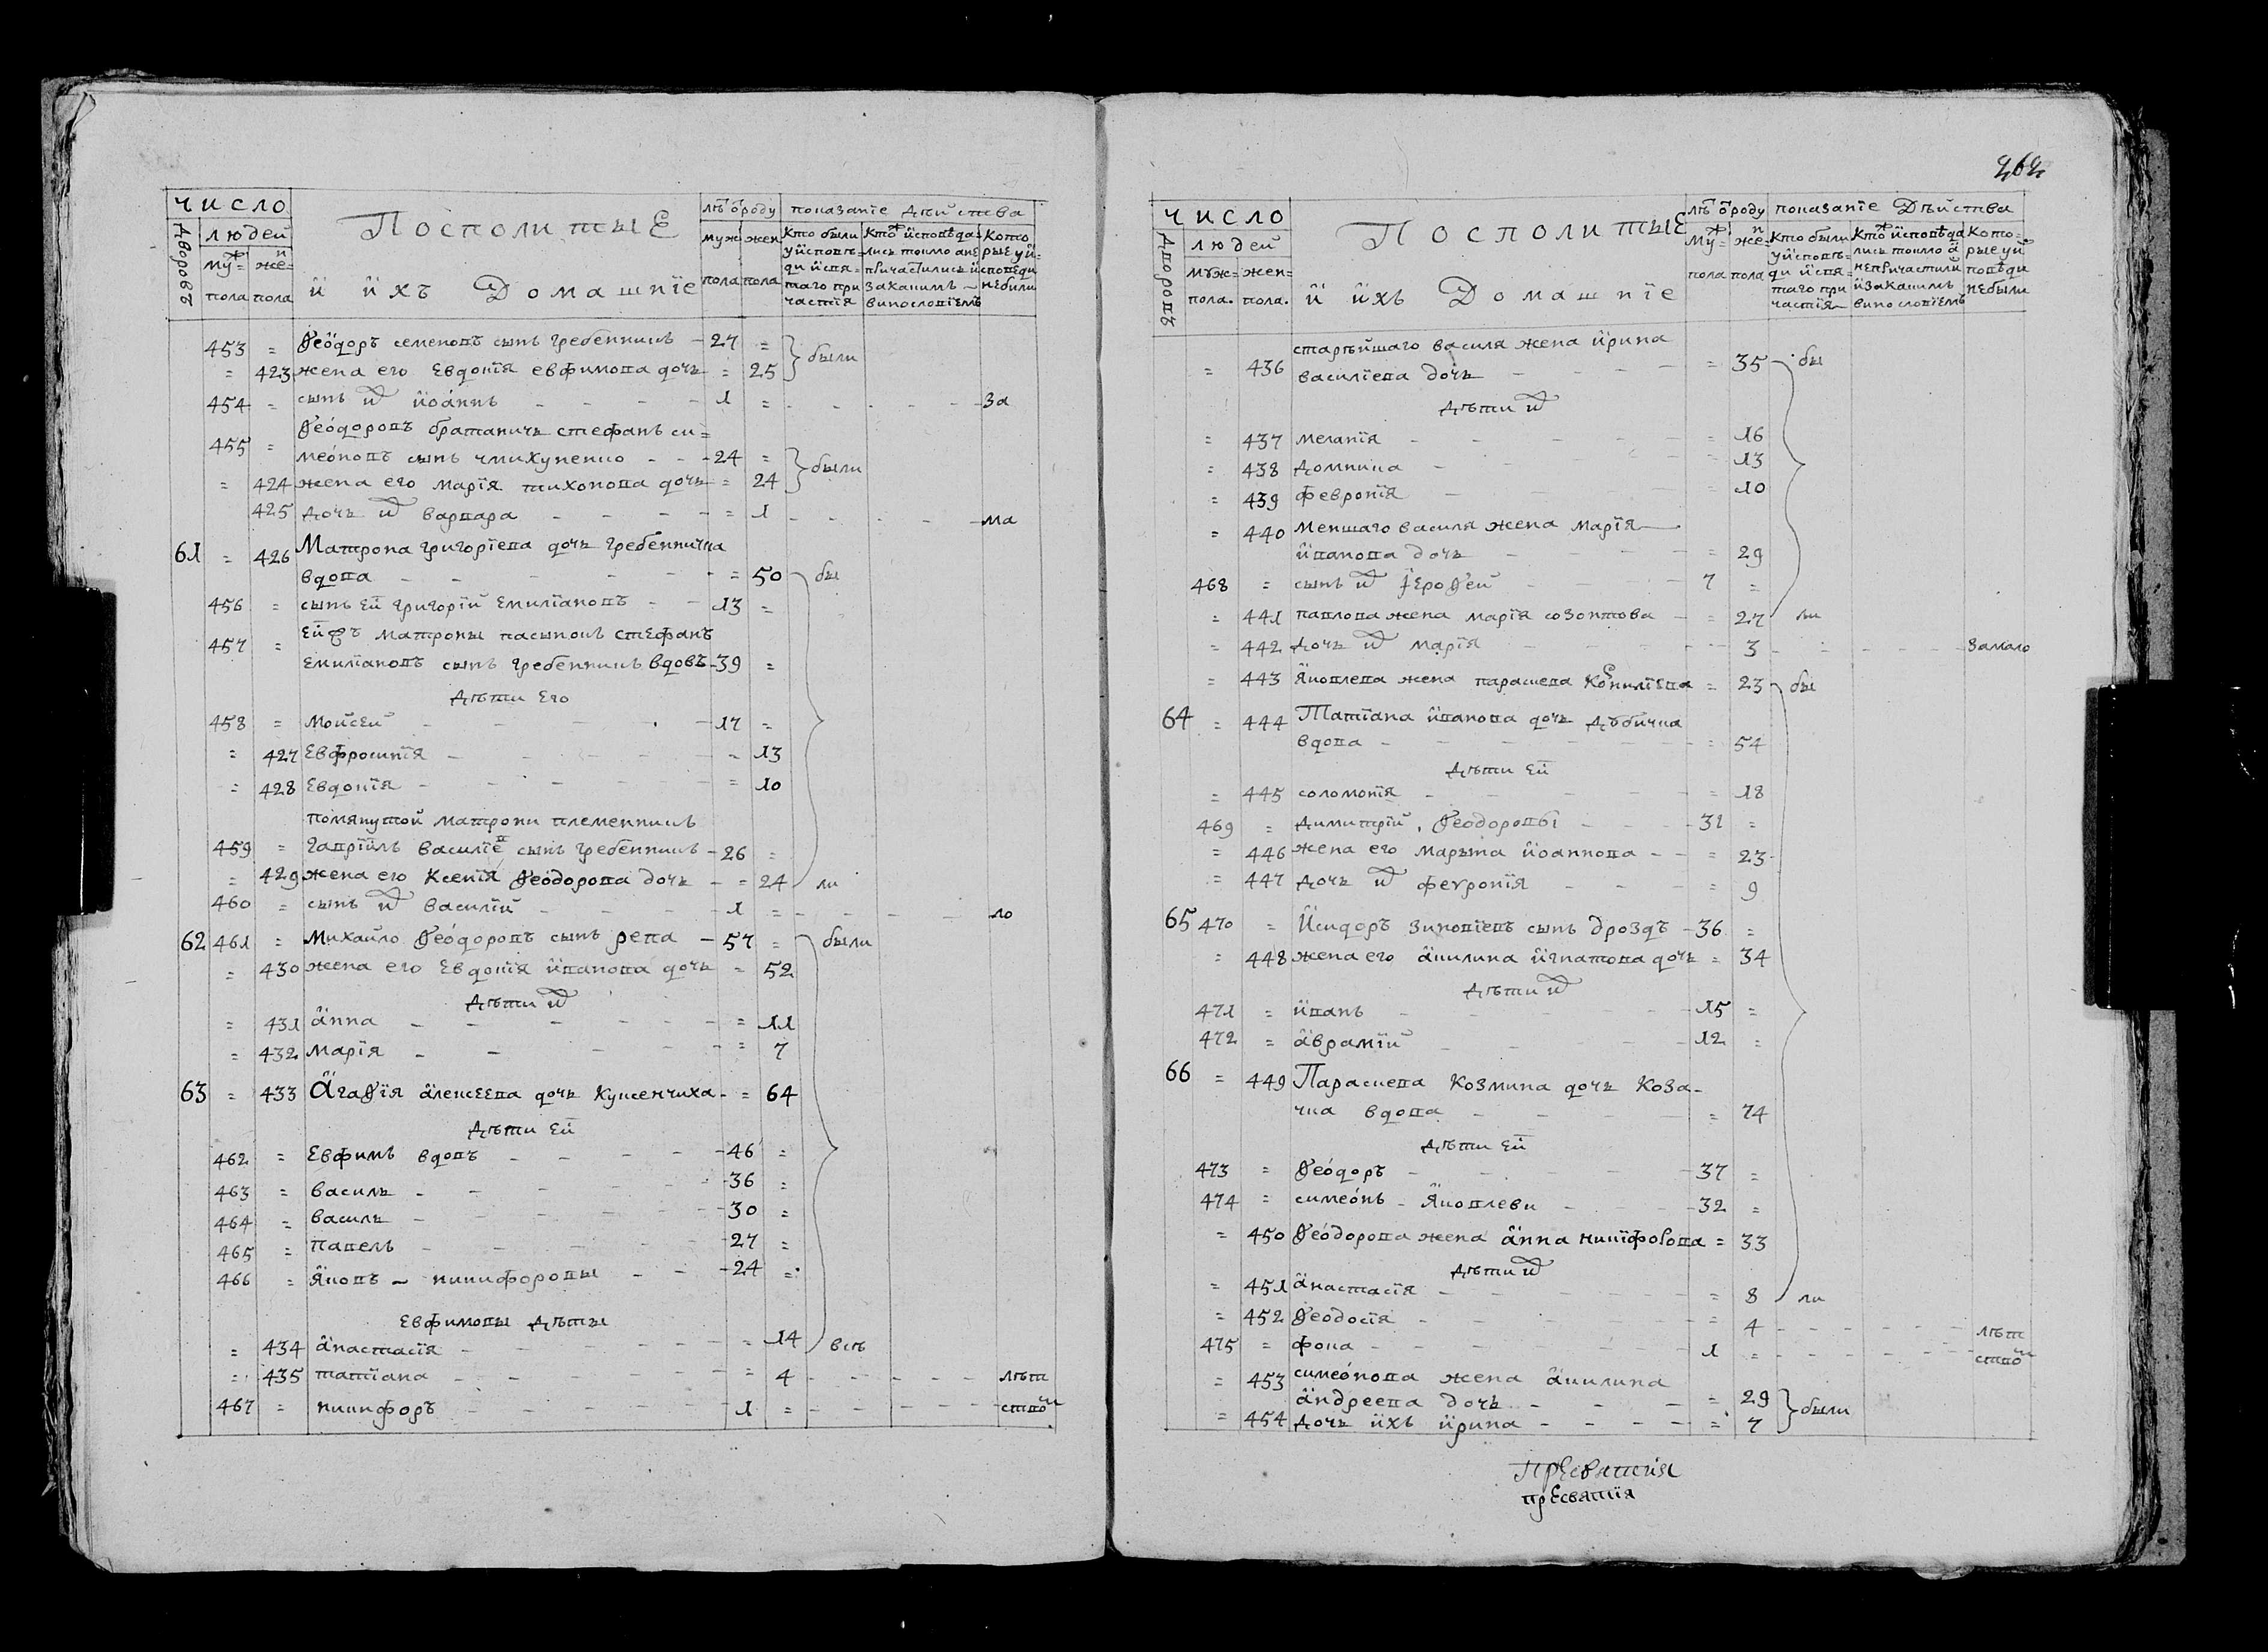 число
Посполитые
лѣ ѿ роду показанїе дѣйства
дворовъ
людей
муж жен
кто были у исповѣди и святаго причастїя
кто исповѣдались токмо а не причастились и за какимъ винословїемъ
которые у исповѣди небыли
муж= же=
пола пола
пола пола
и ихъ Домашнїе
453 = Ѳеодоръ семеновъ сынъ гребенникъ - 27 = были
= 423 жена его Евдокїя евфимова дочь = 25
454 = сынъ их їоаннъ 1 = за
Ѳеодоровъ братаничъ стефанъ си=
455 = меоновъ сынъ чмихуненко - 24 = были
= 424 жена его марїя тихонова дочь = 24
425 дочь их варвара = 1 ма
61 = 426 Матрона григорїева дочь гребенничка
вдова = 50 бы
456 = сынъ ей григорїй емилїановъ 13 =
ейжъ матроны пасынокъ стефанъ
457 = емилїановъ сынъ гребенникъ вдовъ - 39 =
дѣти его
458 = мойсей 17 =
= 427 Евфросинїя = 13
= 428 Евдокїя = 10
помянутой матрони племенникъ
459 = гаврїилъ василїев сынъ гребенникъ - 26 =
= 429 жена его Ксенїя Ѳеодорова дочь = 24 ли
460 = сынъ их василїй 1 = ло
62 461 = михайло Ѳеодоровъ сынъ репа - 57 = были
= 430 жена его Евдокїя иванова дочь = 52
дѣти их
= 431 анна = 11
= 432 марїя = 7
63 = 433 Агаѳїя алексеева дочь куксенчиха = 64
дѣти ей
462 = Евфимъ вдовъ - 46 =
463 = василь - 36 =
464 = василь - 30 =
465 = павелъ - 27 =
466 = яковъ - никифоровы - 24 =
Евфимовы дѣты
= 434 анастасїя = 14 всѣ
= 435 татїана = 4 лѣт
467 = никифоръ 1 = ством
462
число
Посполитые
лѣ ѿ роду показанїе Дѣйства
дворовъ
людей
муж= жен=
пола. пола.
и ихъ Домашнїе
муж= жен=
пола пола
кто были у исповѣди и святаго причастїя
кто исповѣдались токмо а непричастили и за какимъ винословїемъ
которые у исповѣди небыли
старѣйшаго василя жена ирина
= 436 василїева дочь = 35 бы
дѣти их
= 437 меланїя = 16
= 438 домникїа = 13
= 439 февронїя = 10
= 440 меншаго василя жена марїя
иванова дочь = 29
468 = сынъ их їероѳей 7 =
= 441 павлова жена марїя созонтова = 27 ли
= 442 дочь их марїя 3 замало
= 443 яковлева жена параскева корнилїева = 23 бы
64 = 444 Татїана иванова дочь дѣбичка
вдова = 54
дѣти ей
= 445 соломонїя = 18
469 = димитрїй, Ѳеодоровы - 31 =
= 446 жена его марѳа їоаннова = 23
= 447 дочь их февронїя = 9
65 470 = Исидоръ зиновїевъ сынъ дроздъ - 36 =
= 448 жена его акилина игнатова дочь = 34
дѣти их
471 = иванъ - 15 =
472 = аврамїй - 12 =
66 = 449 Параскева козмина дочь коза-
чка вдова = 74
дѣти ей
473 = Ѳеодоръ - 37 =
474 = симеонъ - яковлеви - 32 =
= 450 Ѳеодорова жена анна никїфорова = 33
дѣти их
= 451 анастасїя = 8 ли
= 452 Ѳеодосїя = 4 лѣт
475 = фока 1 = ством
= 453 симеонова жена акилина
андреева дочь = 29 были
= 454 дочь ихъ ирина = 7
пресвятїя
пресвятїя